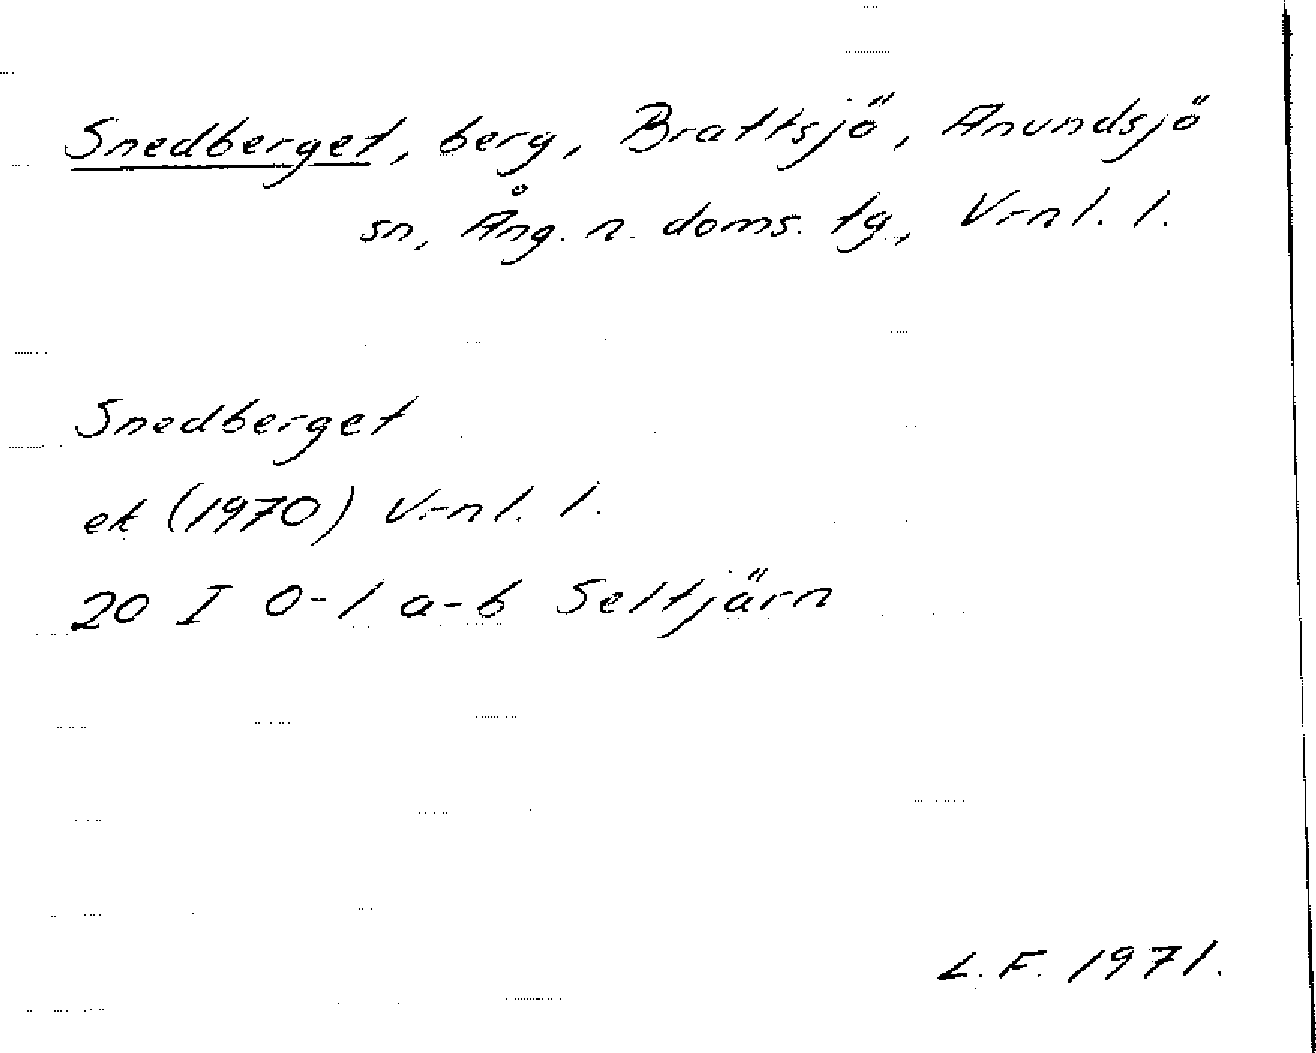 Snedberget, berg, Brattsjö, Anundsjö
sn, Ång. n. doms. tg., V-nl. l.
Snedberget
ek (1970) V-nl. l.
20 I 0-1 a-b Seltjärn
L.F. 1971.